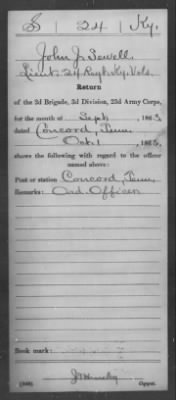 S | 24 | Ky.
John J. Sewell
Lieut. 24 Regt. Ky. Vols.
Return
of the 2d Brigade, 3d Division, 23d Army Corps,
for the month of Sept, 1863
dated Concord, Tenn.
Oct 1, 1863.
shows the following with regard to the officer
named above:
Post or station Concord, Tenn.
Remarks: Ord. Officer
Book mark:
Copyist.